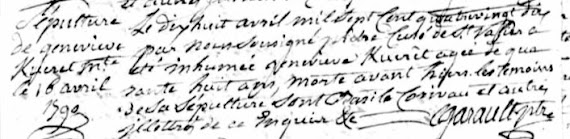 Sépulture
de genevieve
Kueret
le 16 avril
1790
Le dix huit avril mil sept Cent quatrevingt dix
par nous soussigné prêtre Curé de St Vallier a
eté inhumee genevieve Kueret agee de qua
rante huit ans, morte avant hyers. les temoins
de sa sepulture sont Basile Corivau et autres
illettrés de ce requis &c Garault ptre